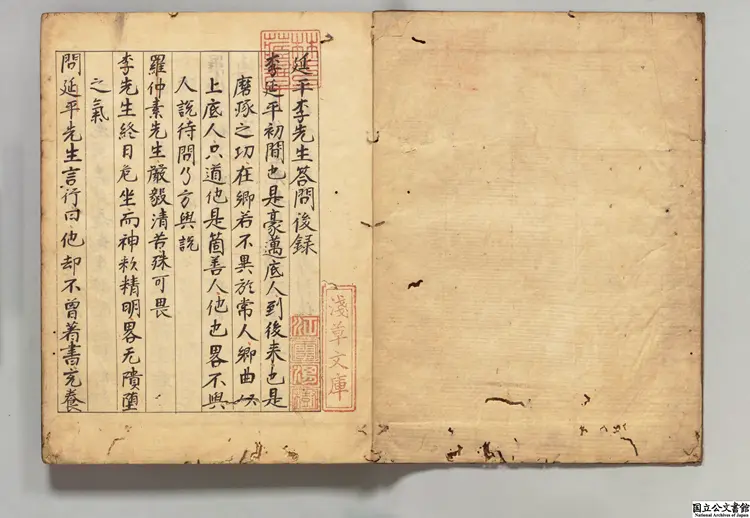 延平李先生答問後録
李延平初間也是豪邁底人到後来也是
磨琢之功在郷若不異於常人郷曲以
上底人只道他是箇善人他也畧不與
人説待問了方與説
羅仲素先生嚴毅清苦殊可畏
李先生終日危坐而神彩精明畧无隤堕
之氣
問延平先生言行曰他却不曽著書充養
淺草文庫
国立公文書館
National Archives of Japan